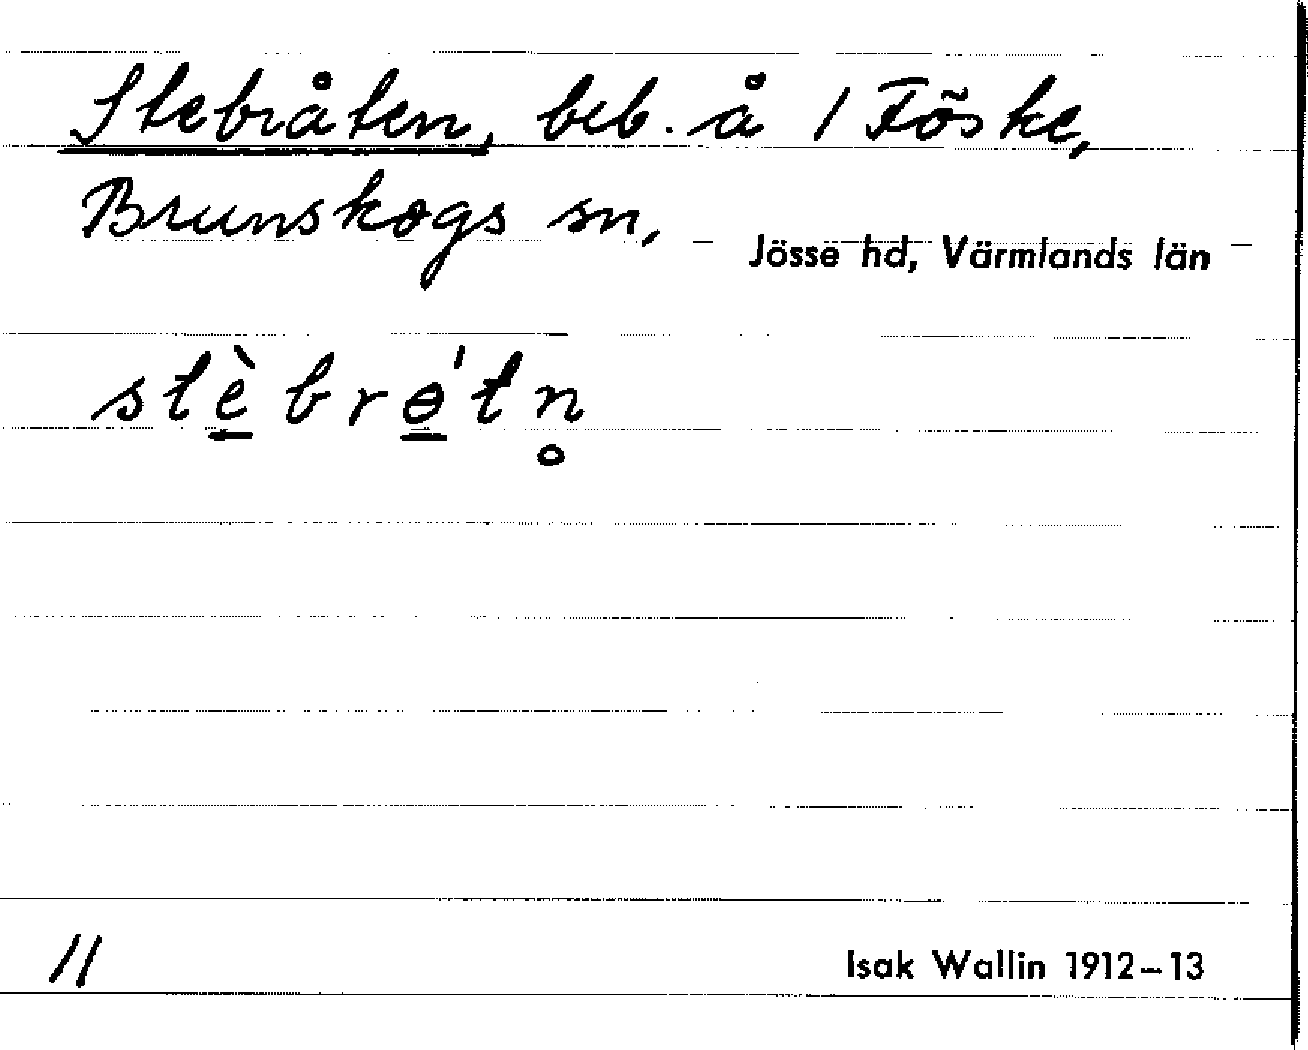 Stebråten, beb. å 1 Föske,
Brunskogs sn, Jösse hd, Värmlands län
stè̱brɵ̱́tn̥
11
Isak Wallin 1912–13